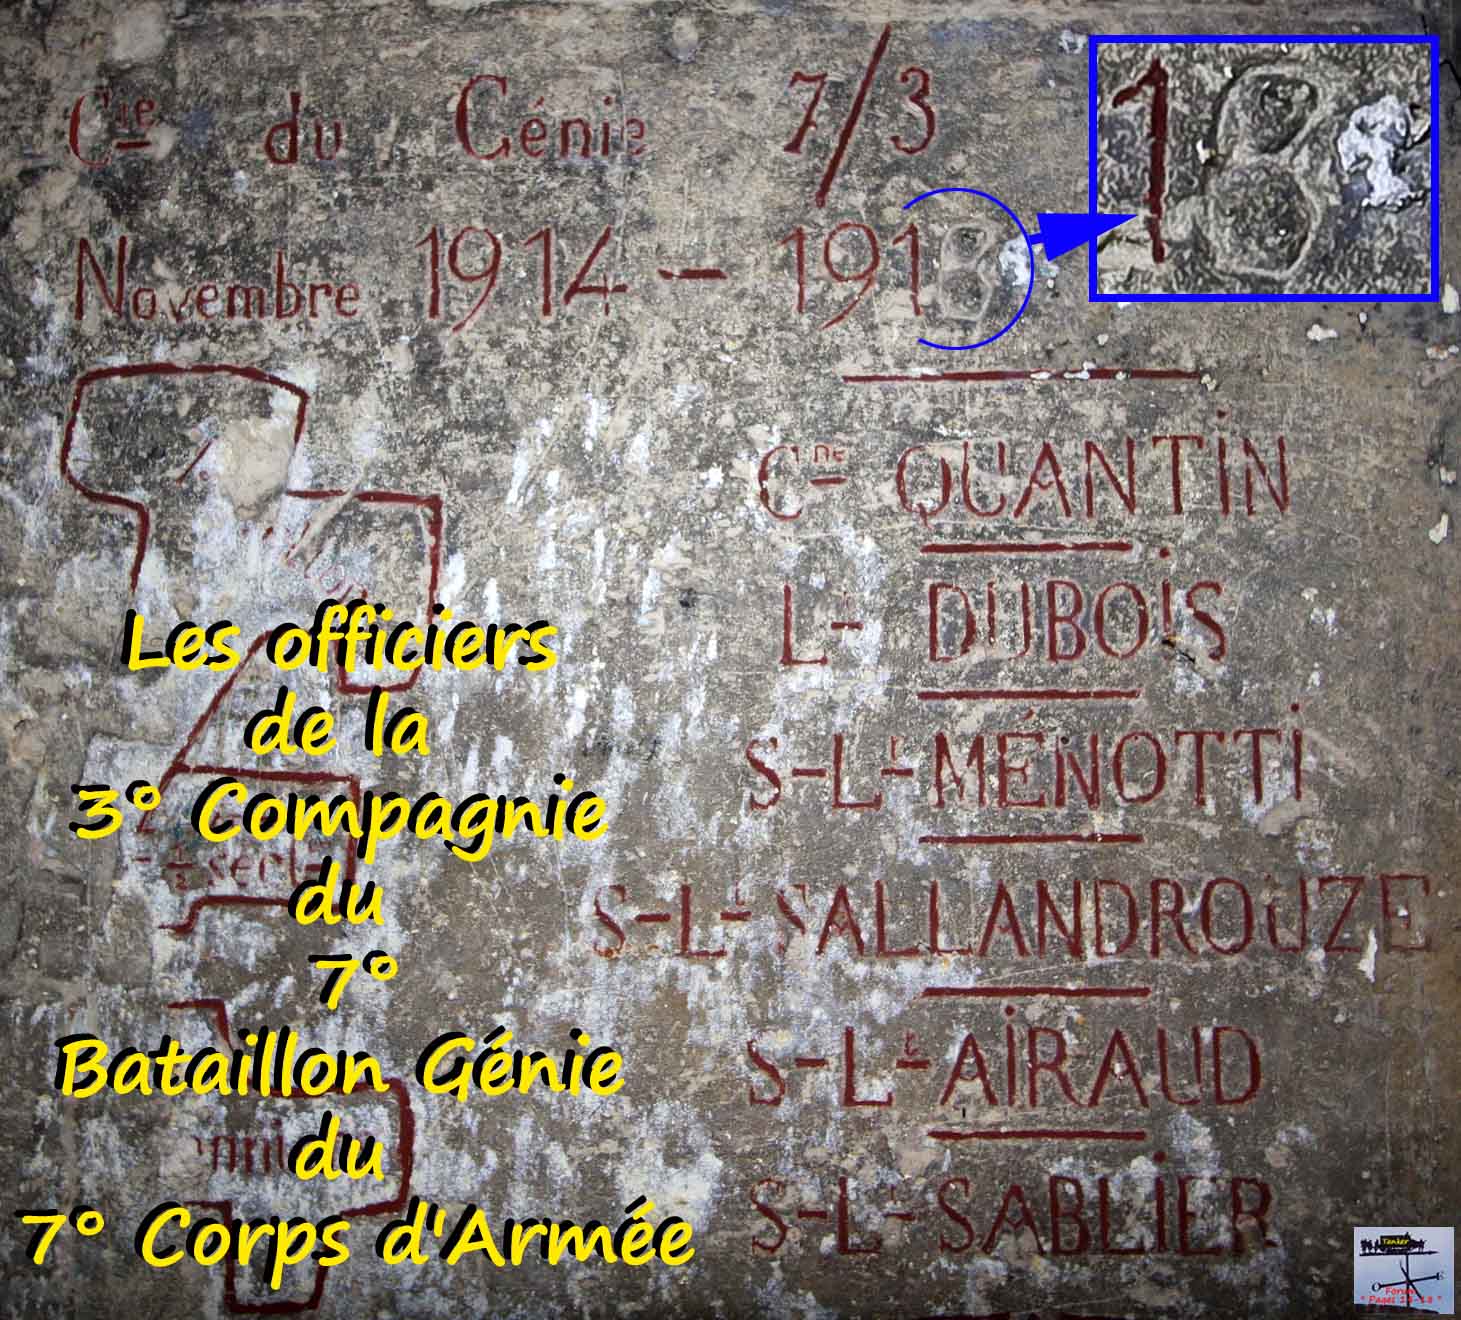 Cie du Génie 7/3
Novembre 1914 - 1918
18
Cne QUANTIN
Lt DUBOIS
S-Lt MÉNOTTI
S-Lt SALLANDROUZE
S-Lt AIRAUD
S-Lt SABLIER
Les officiers
de la
3° Compagnie
du
7°
Bataillon Génie
du
7° Corps d'Armée
Tanker
O E
Forum
" Pages 14-18 "